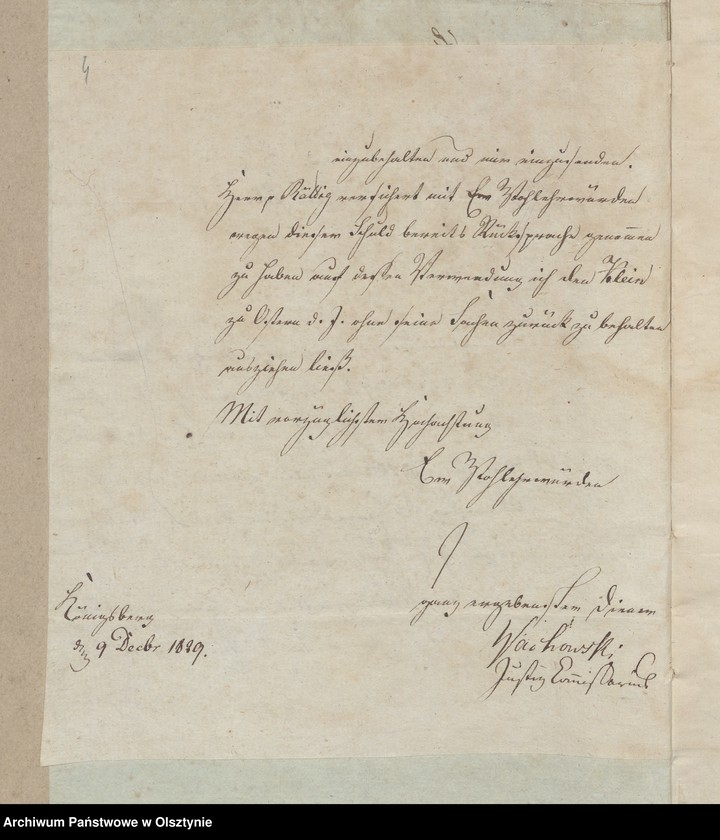 4
einzubehalten und mir einzusenden.
Herr p Rättig versichert mit Ew Wohlehrwürden
wegen dieser Schuld bereits Rücksprache genommen
zu haben auf dessen Verwendung ich den Klein
zu Ostern d. J. ohne seine Sachen zurück zu behalten
ausziehen ließ.
Mit vorzüglichster Hochachtung
Ew Wohlehrwürden
ganz ergebenster Diener
Königsberg
den 9 Decbr 1829.
Justiz Commissarius
Archiwum Państwowe w Olsztynie